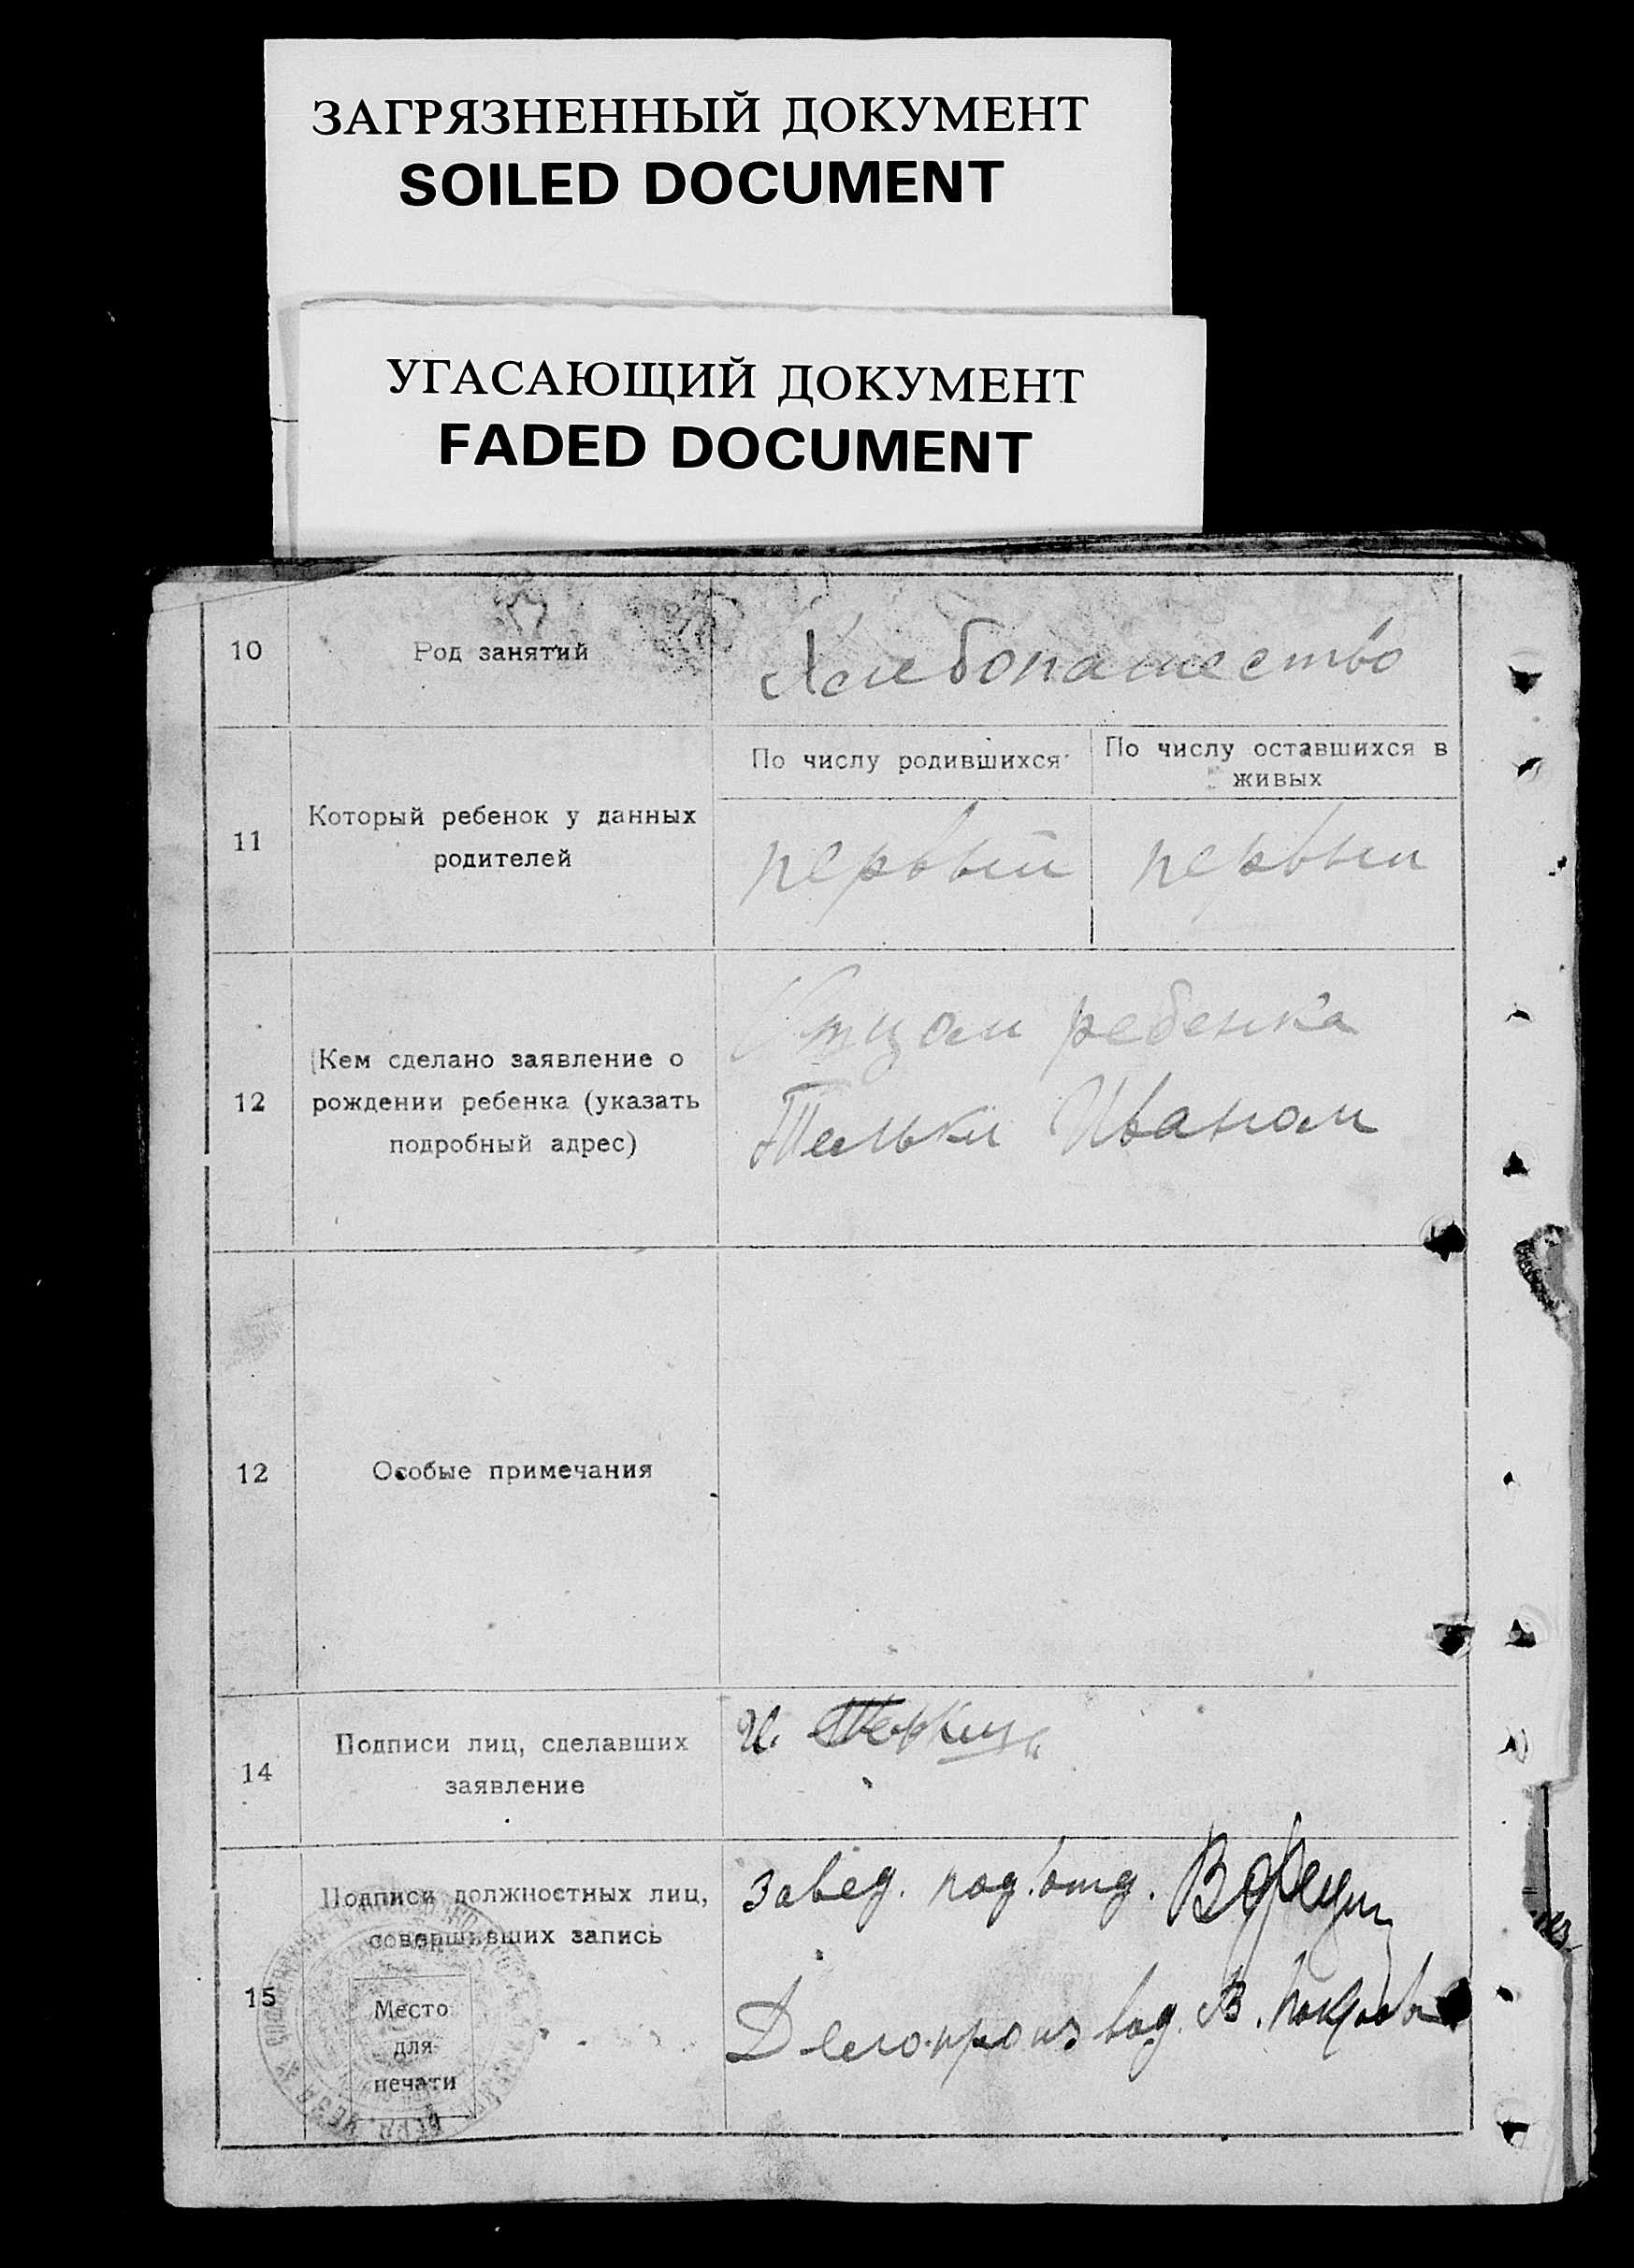 ЗАГРЯЗНЕННЫЙ ДОКУМЕНТ
SOILED DOCUMENT
УГАСАЮЩИЙ ДОКУМЕНТ
FADED DOCUMENT
10
Род занятий
Хлебопашество
11
Который ребенок у данных
родителей
По числу родившихся
По числу оставшихся в
живых
первый
первый
12
Кем сделано заявление о
рождении ребенка (указать
подробный адрес)
Отцом ребенка
Иваном
12
Особые примечания
14
Подписи лиц, сделавших
заявление
И.
15
Подписи должностных лиц,
совершивших запись
Место
для
печати
Завед. под.отд.
Делопроизвод. В.